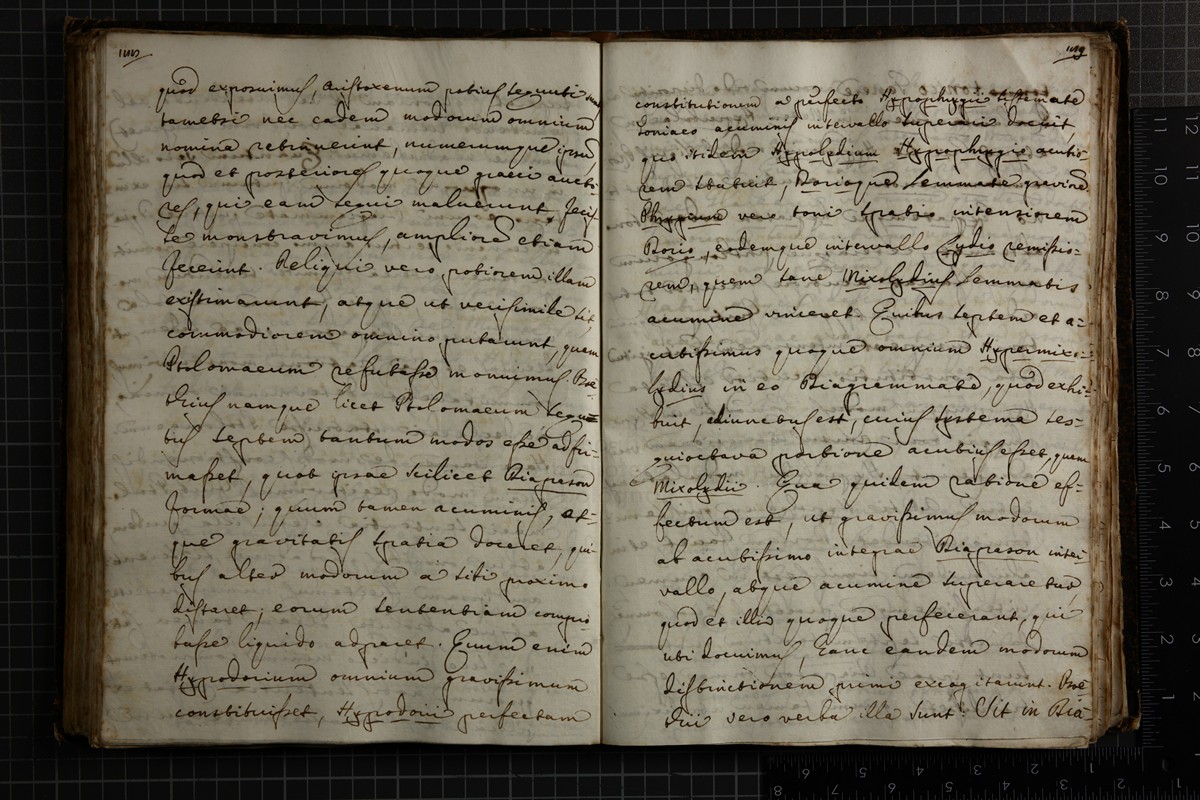 quod exposuimus, Aristoxenum potius sequuti sunt
tametsi nec eadem modorum omnium
nomina retinuerint, numerumque ipsum
quod et posteriores quoque graeci aucto-
res, qui eam sequi maluerunt, fecis-
se monstravimus, ampliorem etiam
fecerint. Reliqui vero potiorem illam
existimarunt, atque ut verisimile sit,
commodiorem omnino putarunt, quam
Ptolomaeum refutasse monuimus. Boe-
thius namque licet Ptolomaeum sequu-
tus septem tantum modos esse adfir-
masset, quot ipsae scilicet Diapason
formae; quum tamen acuminis, at-
que gravitatis spatia doceret, qui-
bus alter modorum a sibi proximo
distaret; eorum sententiam compro-
basse liquido adparet. Quum enim
Hypodorium omnium gravissimum
constituisset, Hypodorii perfectam
constitutionem a perfecto Hypophrygii sistemate
toniaeo acuminis intervallo superari docuit,
quo itidem Hypolydium Hypophrygio acutio-
rem statuit, Dorioque semmate graviorem
Phrygium vero toni spatio intensiorem
Dorio, eodemque intervallo Lydio remissio-
rem, quem sane Mixolydius semmatis
acumine vinceret. Quibus septem et a-
cutissimus quoque omnium Hypermixo-
lydius in eo Diagrammate, quod exhi-
buit, adiunctus est, cuius sistema ses-
quioctava portione acutius esset, quam
Mixolydii. Qua quidem ratione ef-
fectum est, ut gravissimus modorum
ab acutissimo integrae Diapason inter-
vallo, atque acumine superaretur
quod et illi quoque perfecerant, qui
ubi docuimus, hanc eandem modorum
distinctionem primi excogitarunt. Boe-
thii vero verba illa sunt: Sit in Dia-